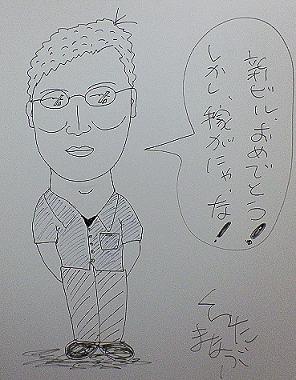 新ビル、おめでとう!
しかし、稼がにゃ、な!
くにたち
まなぶ